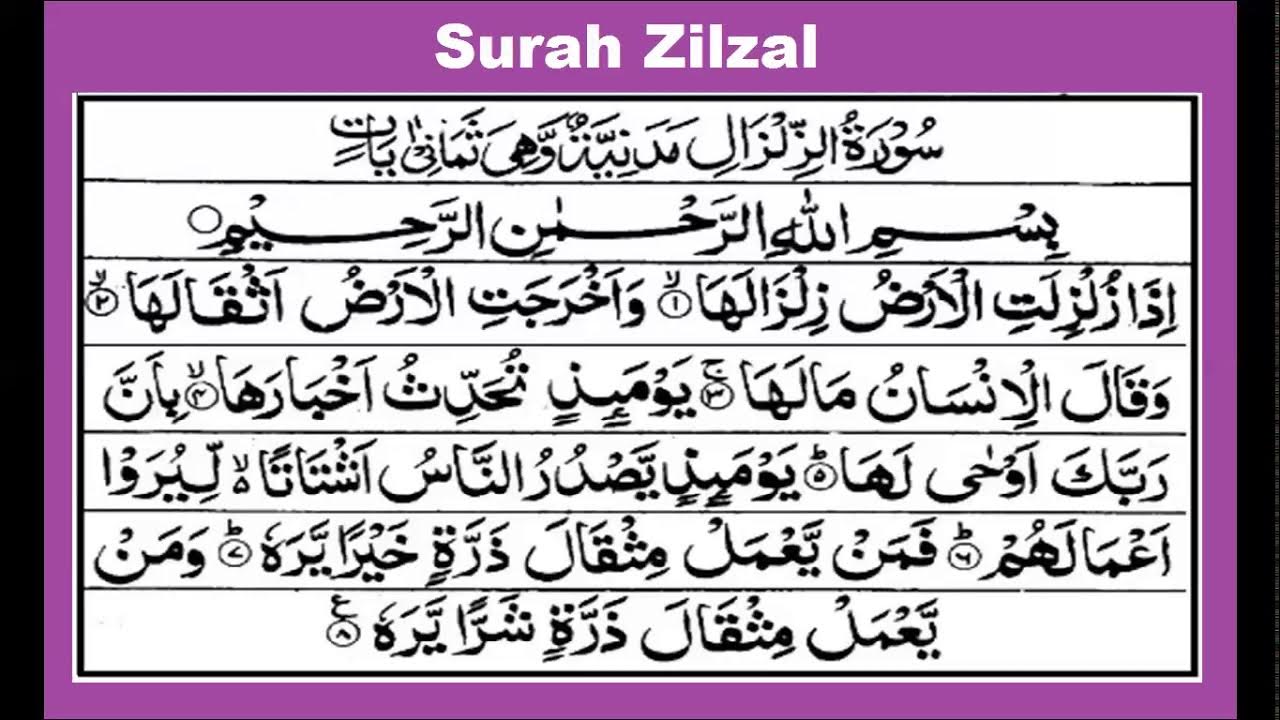 Surah Zilzal
سُوْرَةُ الزِّلْزَالِ مَدَنِيَّةٌ وَّهِيَ ثَمَانِيْ اٰيَاتٍ
بِسْمِ اللّٰهِ الرَّحْمٰنِ الرَّحِيْمِ ○
اِذَا زُلْزِلَتِ الْاَرْضُ زِلْزَالَهَا ۙ﴿۱﴾ وَاَخْرَجَتِ الْاَرْضُ اَثْقَالَهَا ۙ﴿۲﴾
وَقَالَ الْاِنْسَانُ مَا لَهَا ۚ﴿۳﴾ يَوْمَئِذٍ تُحَدِّثُ اَخْبَارَهَا ۙ﴿۴﴾ بِاَنَّ
رَبَّكَ اَوْحٰى لَهَا ؕ﴿۵﴾ يَوْمَئِذٍ يَّصْدُرُ النَّاسُ اَشْتَاتًا ۙ لِّيُرَوْا
اَعْمَالَهُمْ ؕ﴿۶﴾ فَمَنْ يَّعْمَلْ مِثْقَالَ ذَرَّةٍ خَيْرًا يَّرَهٗ ؕ﴿۷﴾ وَمَنْ
يَّعْمَلْ مِثْقَالَ ذَرَّةٍ شَرًّا يَّرَهٗ ﴿۸﴾ ع